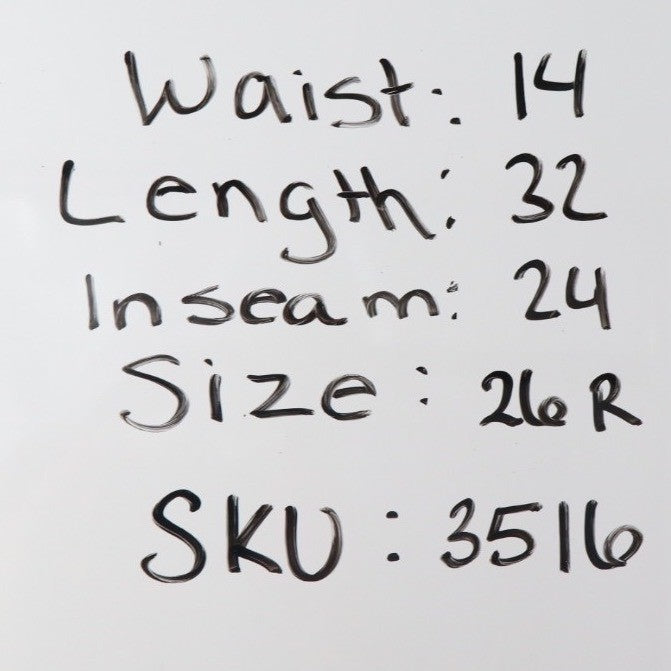 Waist: 14
Length: 32
Inseam: 24
Size: 26R
SKU: 3516